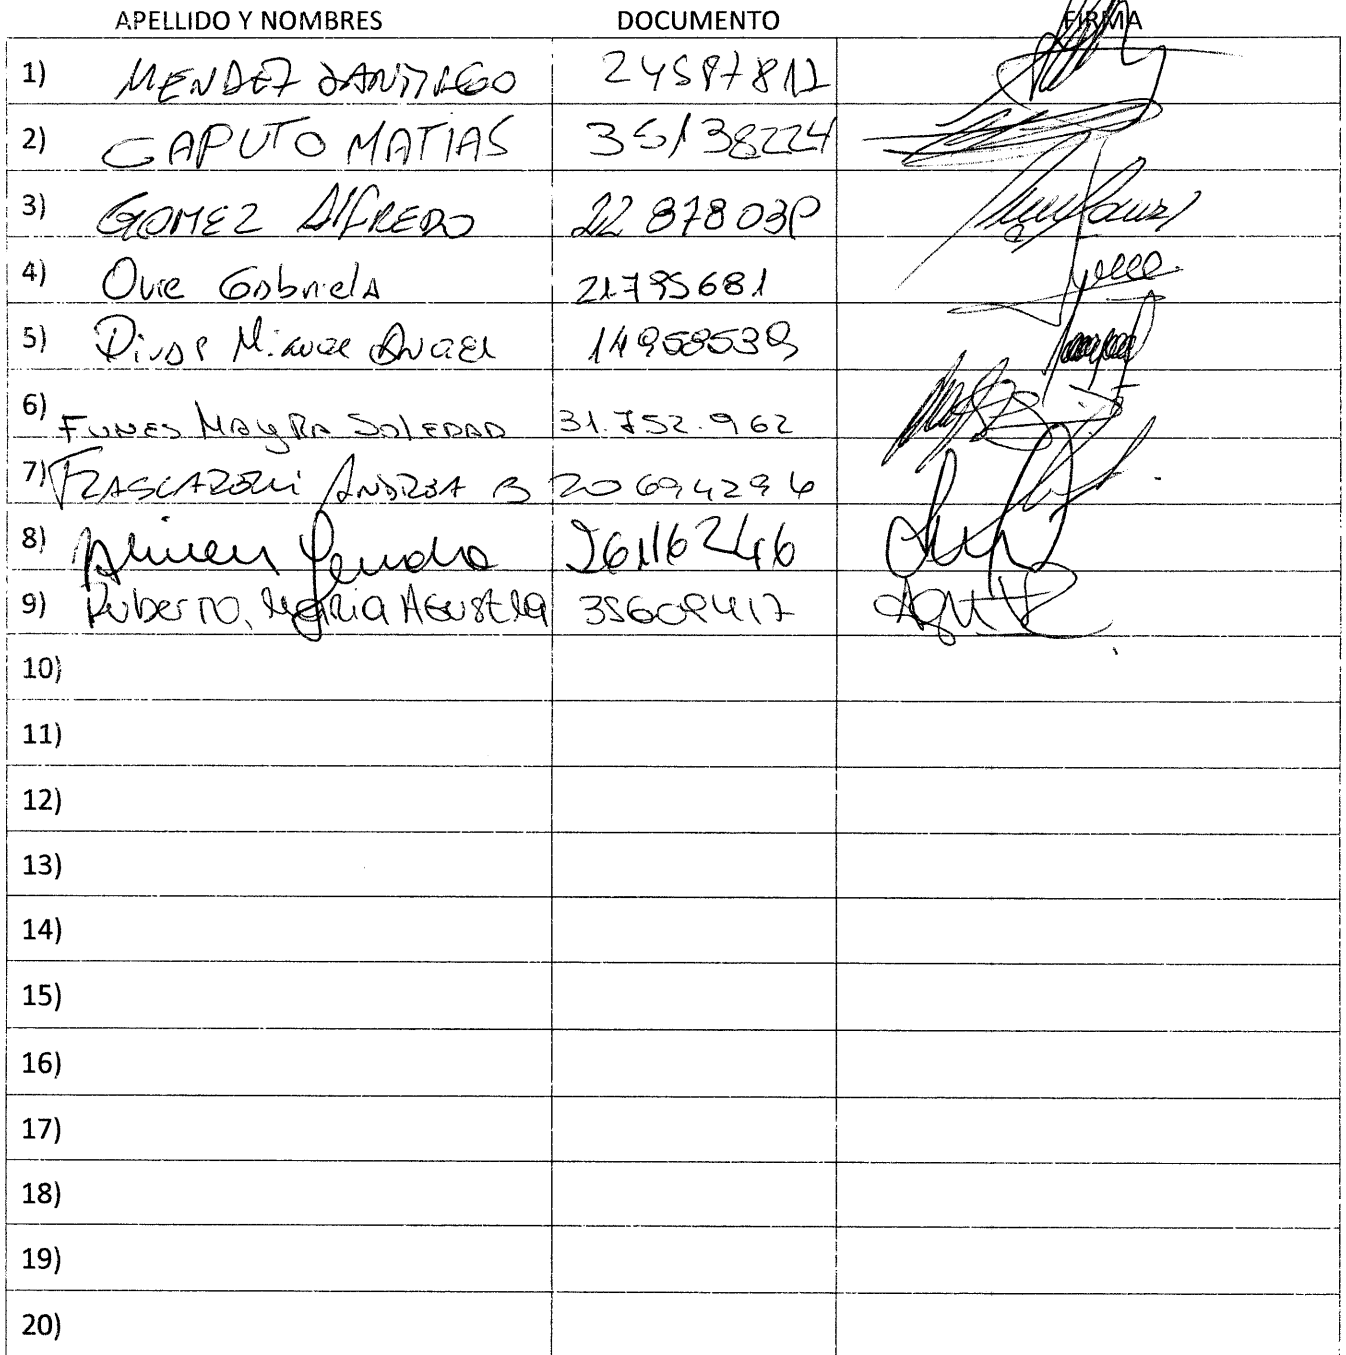 APELLIDO Y NOMBRES DOCUMENTO FIRMA
1) MENDEZ SANTIAGO 24587812
2) CAPUTO MATIAS 35138224
3) GOMEZ AlFREDO 22 878 039
4) Gabriela 21795681
5) Miguel Angel 14958539
6) FUNES MAYRA SOLEDAD 31.752.962
7) ANDREA B 20694296
8) 26116246
9) Ruberto, Maria Agustina 35609417
10)
11)
12)
13)
14)
15)
16)
17)
18)
19)
20)